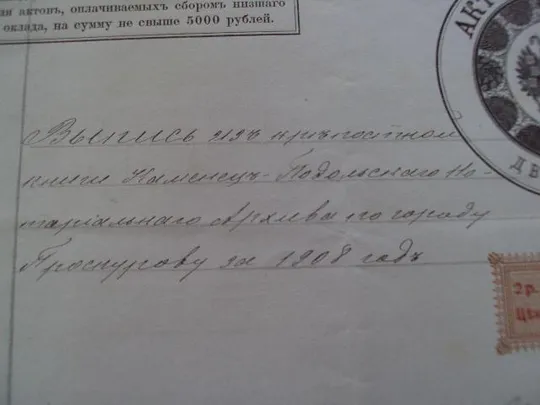 ли актовъ, оплачиваемыхъ сборомъ низшаго
оклада, на сумму не свыше 5000 рублей.
АКТ
ДВ
Выпись изъ крѣпостной
книги Каменецъ-Подольскаго Но-
таріальнаго Архива по городу
Проскурову за 1908 годъ
2 р.